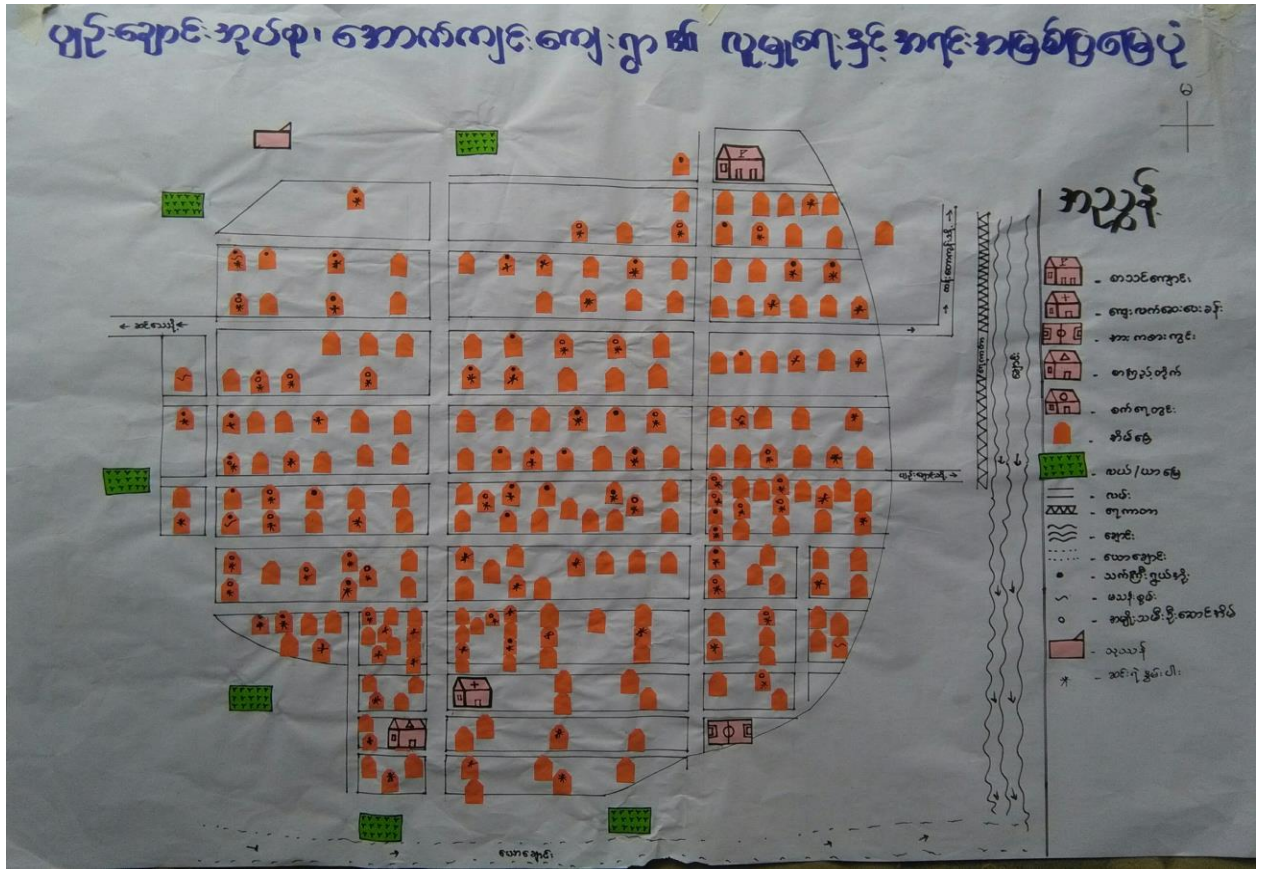 ပျဉ်းချောင်းအုပ်စု၊ အောက်ကျင်းကျေးရွာ၏ လူမှုရေးနှင့် အရင်းအမြစ်ပြမြေပုံ
မ
အညွှန်း
- စာသင်ကျောင်း
- ကျေးလက်ဆေးပေးခန်း
- အားကစားကွင်း
- စာကြည့်တိုက်
- စက်ရေတွင်း
- အိမ်ခြေ
- လယ်/ယာမြေ
- လမ်း
- ရေကာတာ
- ချောင်း
- ယောချောင်း
- သက်ကြီးရွယ်အို
- မသန်စွမ်း
- အမျိုးသမီးဦးဆောင်အိမ်
- သုဿန်
- ဆင်းရဲနွမ်းပါး
ရေကာတာ
ယောချောင်း